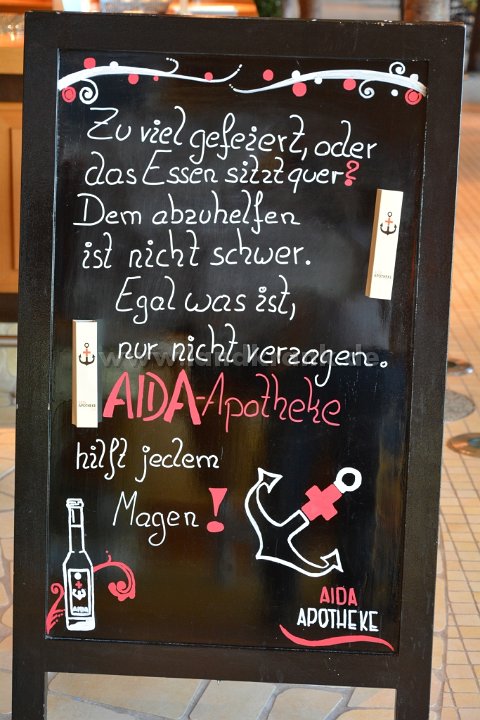 Zu viel gefeiert, oder
das Essen sitzt quer?
Dem abzuhelfen
ist nicht schwer.
Egal was ist,
nur nicht verzagen.
AIDA-Apotheke
hilft jedem
Magen!
AIDA
AIDA
APOTHEKE
APOTHEKE
APOTHEKE